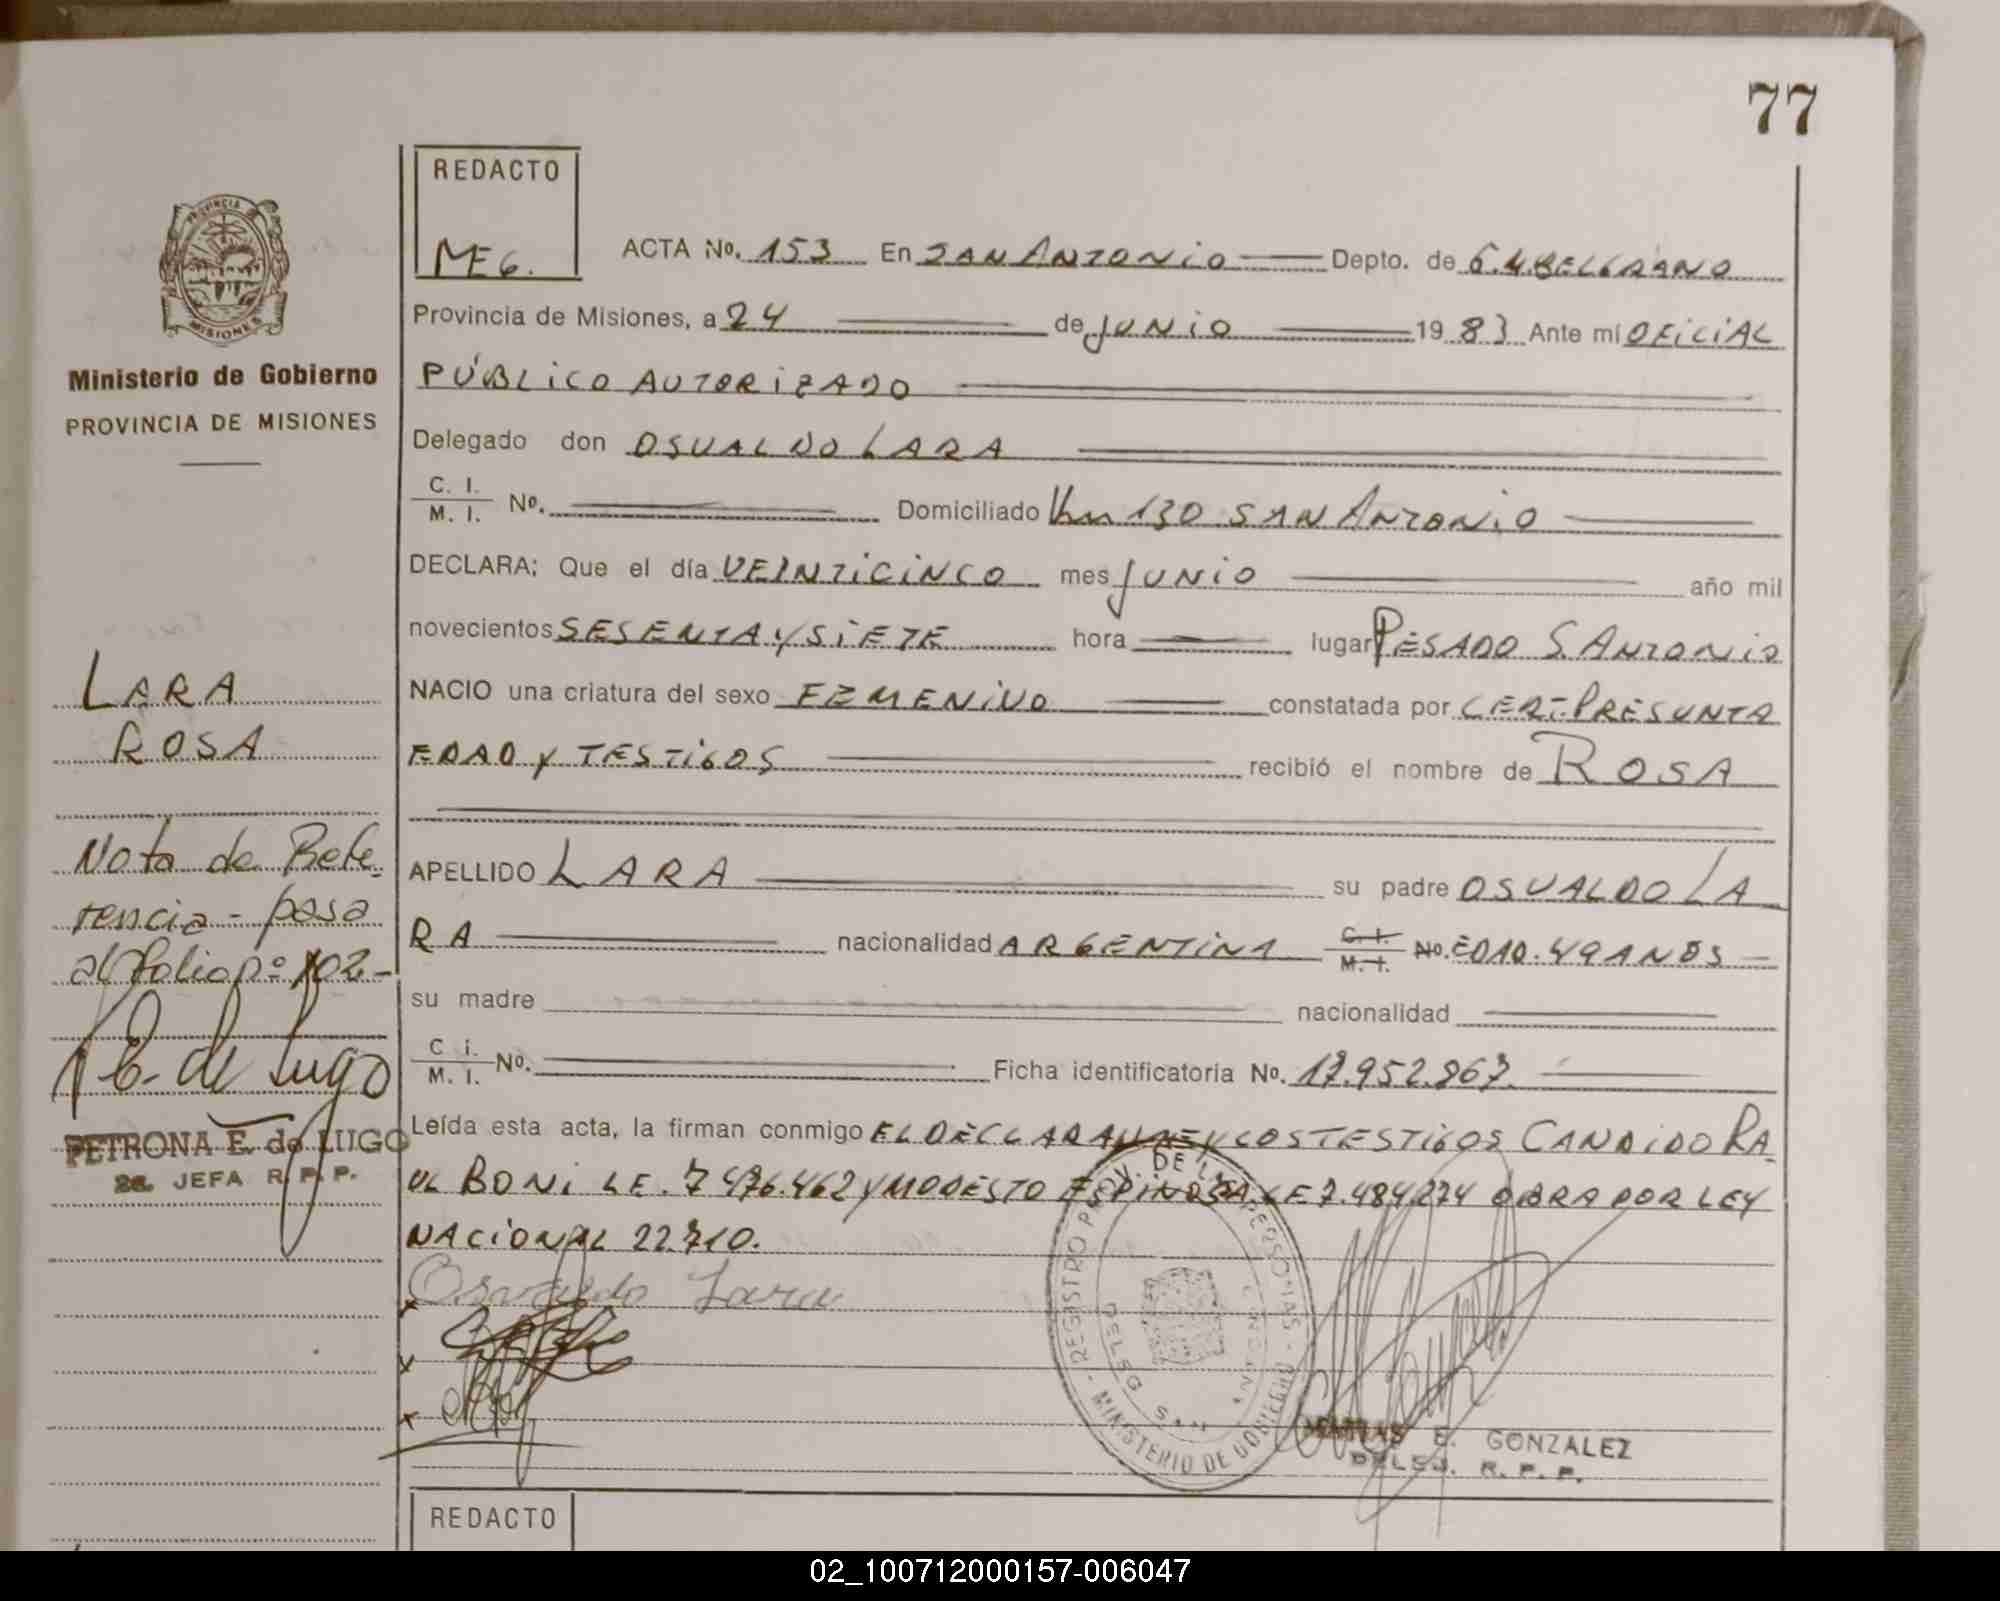 77
REDACTO
MEG.
PROVINCIA
MISIONES
Ministerio de Gobierno
PROVINCIA DE MISIONES
ACTA No. 153 En SAN ANTONIO Depto. de G.M.BELGRANO
Provincia de Misiones, a 24 de JUNIO 1983 Ante mí OFICIAL
PÚBLICO AUTORIZADO
Delegado don OSVALDO LARA
C. I.
M. I. No. Domiciliado Km 130 SAN ANTONIO
DECLARA: Que el día VEINTICINCO mes JUNIO año mil
novecientos SESENTA Y SIETE hora lugar PESADO S. ANTONIO
NACIO una criatura del sexo FEMENINO constatada por CERT. PRESUNTA
EDAD Y TESTIGOS recibió el nombre de ROSA
APELLIDO LARA su padre OSVALDO LA
RA nacionalidad ARGENTINA C. I. M. I. No. EDAD. 49 ANOS
su madre nacionalidad
C. i.
M. I. No. Ficha identificatoria No. 17.952.867.
Leída esta acta, la firman conmigo EL DECLARANTE Y LOS TESTIGOS CANDIDO RA
UL BONI LE. 7 476.462 Y MODESTO ESPINOSA LE 7.484.274 OBRA POR LEY
NACIONAL 22.710.
Osvaldo Lara
x
x
x
REGISTRO PROV. DE LAS PERSONAS - MINISTERIO DE GOBIERNO -
DELEG. SAN ANTONIO
E. GONZALEZ
DELEG. R. P. P.
LARA
ROSA
Nota de Refe
rencia - pasa
al folio nº 102-
E. de Lugo
PETRONA E. de LUGO
2a. JEFA R. P. P.
REDACTO
02_100712000157-006047